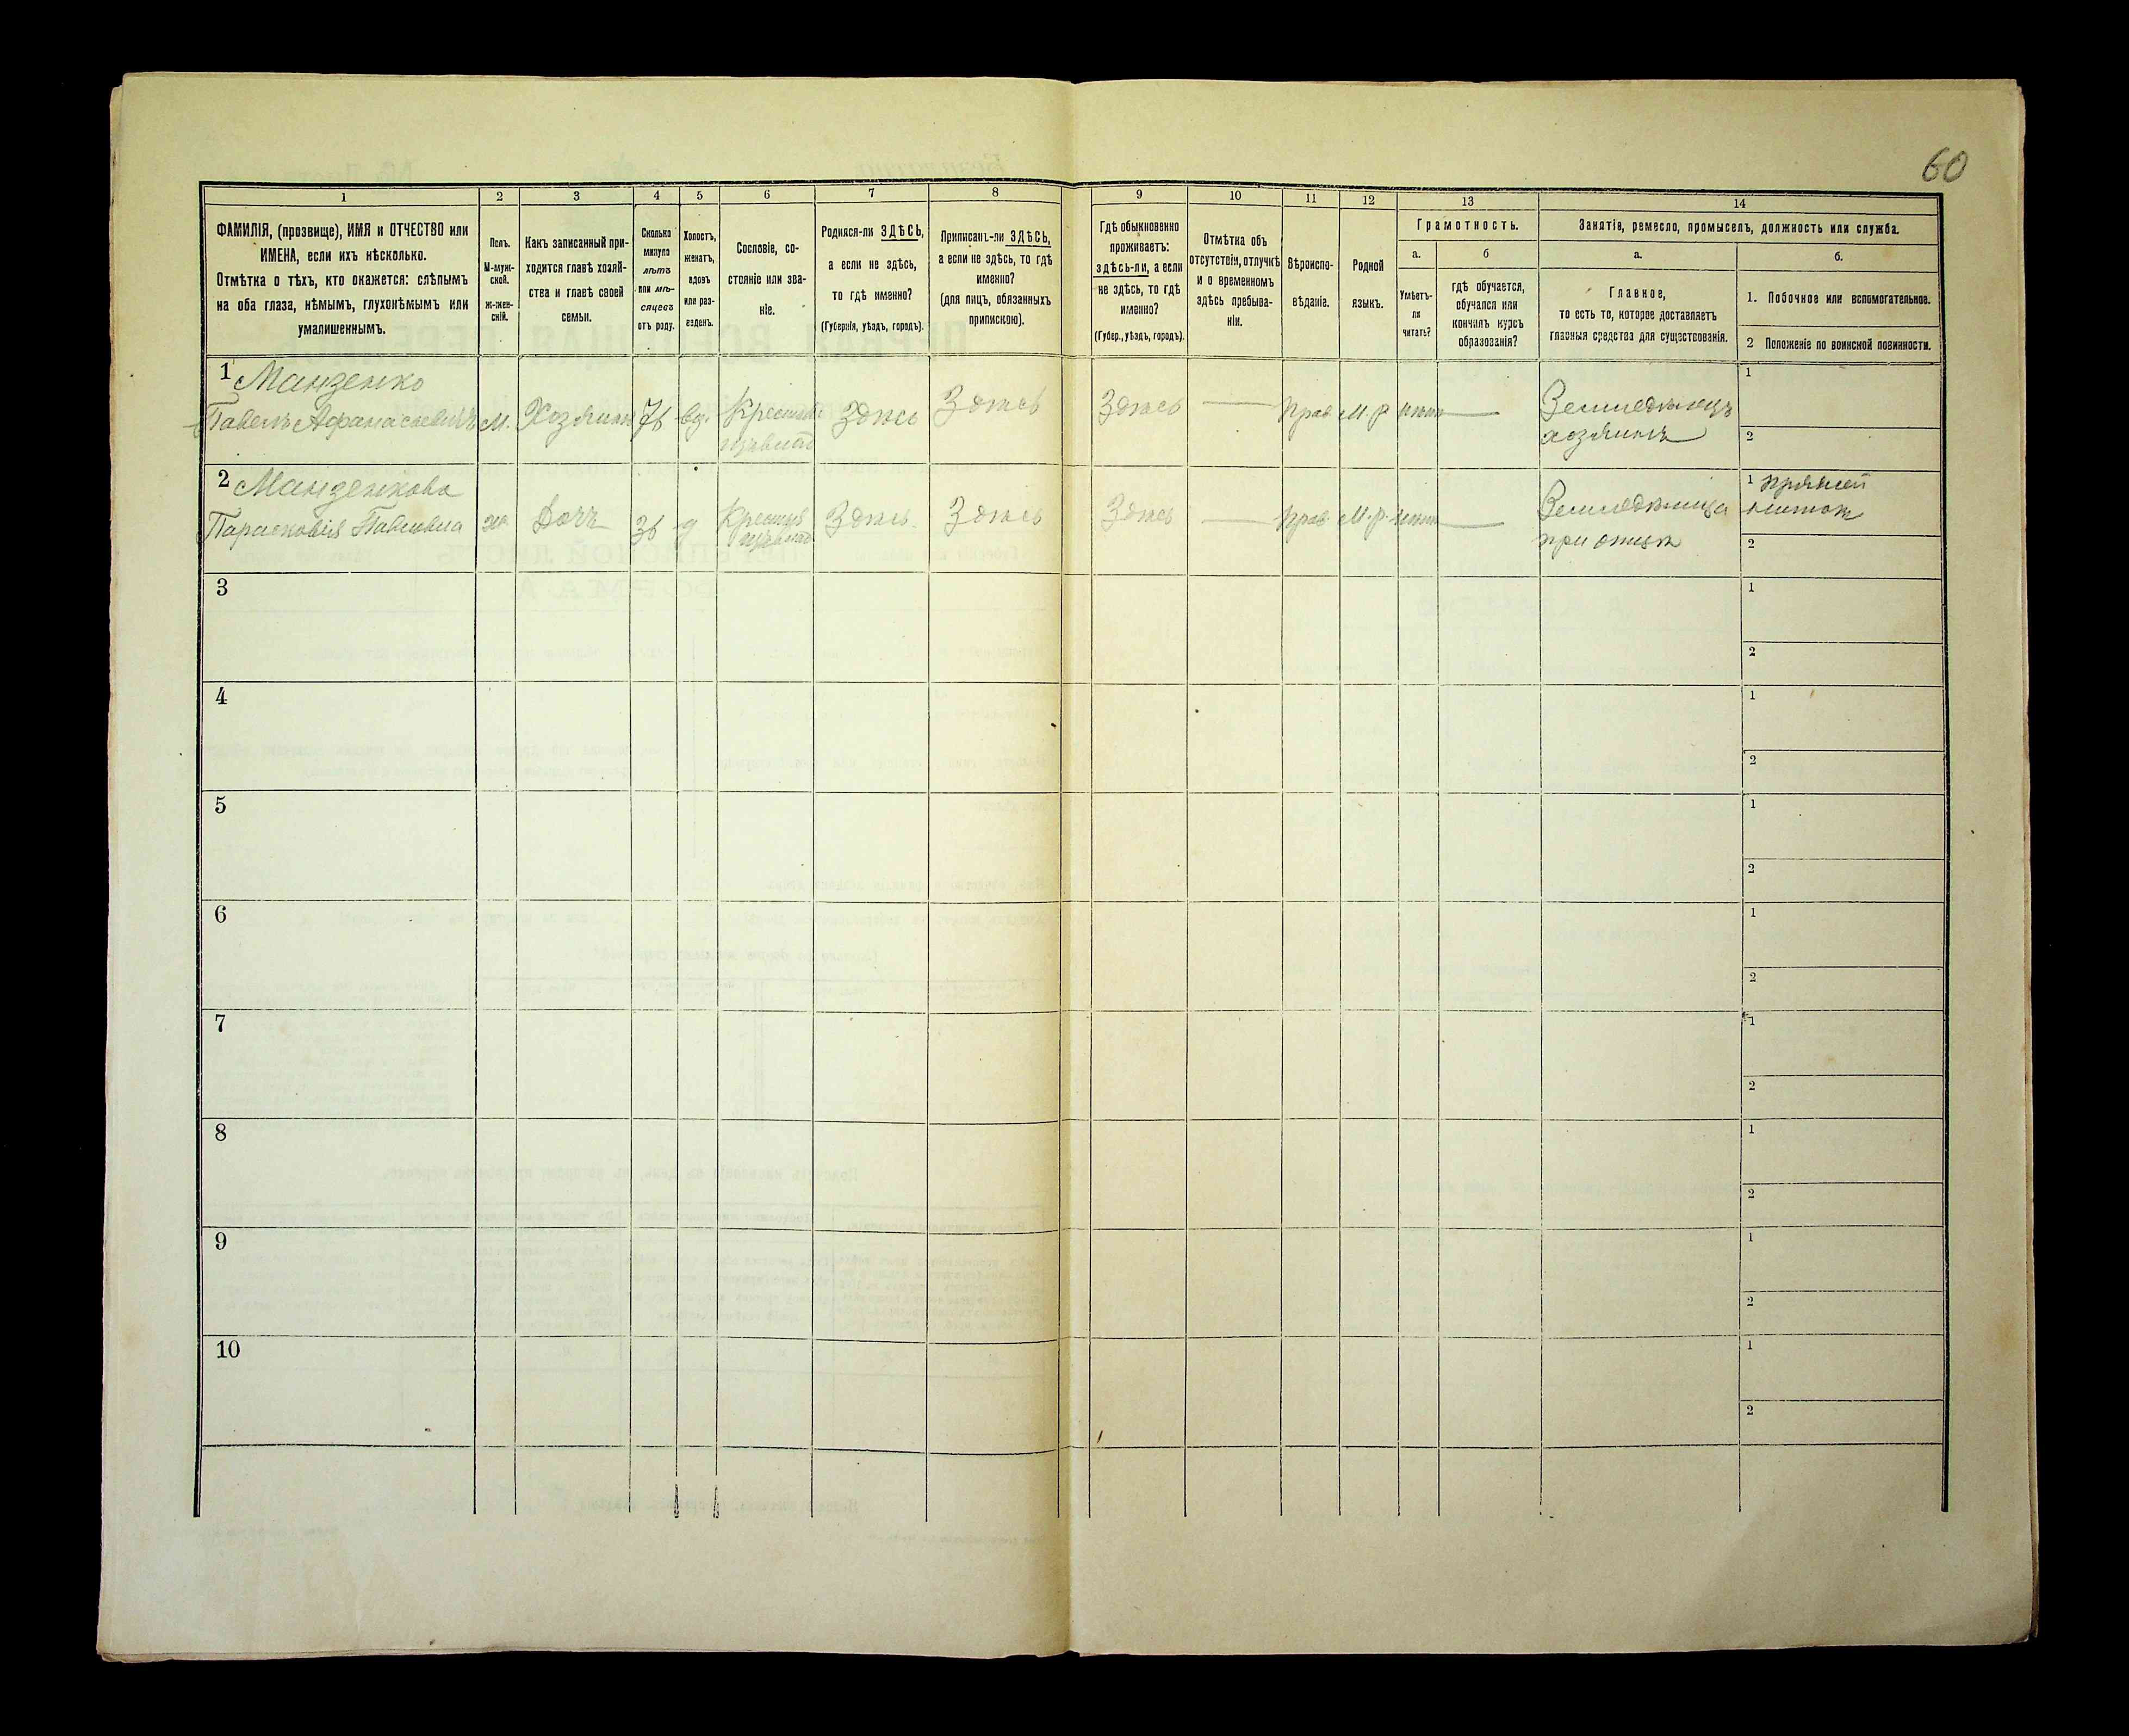 60
1
2
3
4
5
6
7
8
9
10
11
12
13
14
ФАМИЛІЯ, (прозвище), ИМЯ и ОТЧЕСТВО или
ИМЕНА, если ихъ нѣсколько.
Отмѣтка о тѣхъ, кто окажется: слѣпымъ
на оба глаза, нѣмымъ, глухонѣмымъ или
умалишеннымъ.
Полъ.
М-муж-
ской.
ж-жен-
скій.
Какъ записанный при-
ходится главѣ хозяй-
ства и главѣ своей
семьи.
Сколько
минуло
лѣтъ
или мѣ-
сяцевъ
отъ роду.
Холостъ,
женатъ,
вдовъ
или раз-
веденъ.
Сословіе, со-
стояніе или зва-
ніе.
Родился-ли ЗДѢСЬ,
а если не здѣсь,
то гдѣ именно?
(Губернія, уѣздъ, городъ).
Приписанъ-ли ЗДѢСЬ,
а если не здѣсь, то гдѣ
именно?
(для лицъ, обязанныхъ
припискою).
Гдѣ обыкновенно
проживаетъ:
здѣсь-ли, а если
не здѣсь, то гдѣ
именно?
(Губер., уѣздъ, городъ).
Отмѣтка объ
отсутствіи, отлучкѣ
и о временномъ
здѣсь пребыва-
ніи.
Вѣроиспо-
вѣданіе.
Родной
языкъ.
Грамотность.
а.
б
Умѣетъ-
ли
читать?
гдѣ обучается,
обучался или
кончилъ курсъ
образованія?
Занятіе, ремесло, промыселъ, должность или служба.
а.
б.
Главное,
то есть то, которое доставляетъ
главныя средства для существованія.
1. Побочное или вспомогательное.
2 Положеніе по воинской повинности.
1 Манзенко
Павелъ Афанасьевичъ м. Хозяинъ 76 вд. Крестья Здѣсь Здѣсь Здѣсь — Прав М.р нѣтъ — Земледѣлецъ
хозяинъ
1
2
2 Манзенкова
Парасковія Павловна ж. Дочь 36 д Крестья Здѣсь Здѣсь Здѣсь — Прав М.р. нѣтъ — Земледѣлица
при отцѣ
1 пряжей
нитокъ
2
3
1
2
4
1
2
5
1
2
6
1
2
7
1
2
8
1
2
9
1
2
10
1
2